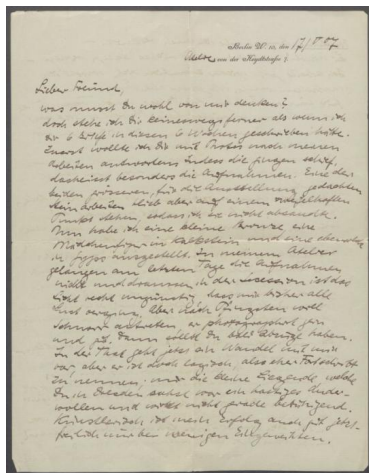 Berlin W. 10, den 17/V 07
von der Heydtstraße
Lieber Freund,
was musst Du wohl von mir denken?
doch stehe ich Dir keineswegs ferner als wenn ich
Dir 6 Briefe in diesen 6 Wochen geschrieben hätte.
Zuerst wollte ich Dir mit Photos nach neuen
Arbeiten antworten indess die gingen schief,
das heisst besonders die Aufnahmen. Eine der
beiden grösseren, für die Ausstellung gedachten
Steinarbeiten blieb aber auf einem
Punkt stehen, sodass ich sie nicht absandte.
Nun habe ich eine kleine Bronze, eine
Mädchenfigur in Kalkstein und eine
in Gyps fertiggestellt. In meinem Atelier
gelangen am letzten Tage die Aufnahmen
nicht und draussen in der Secession ist das
Licht recht ungünstig, dass mir bisher alle
Lust verging. Aber nach Pfingsten soll
er photographiert gern
und gut. Dann sollst Du alles Abzüge haben.
In der Tat geht jetzt ein Wandel mit mir
vor aber er ist doch logisch, also eher Fortschritt
zu nennen; nur die kleine Liegende, welche
Du in Dresden sahst war ein
wollen und wirkt nicht gerade
Künstlerisch ist mein Erfolg auch gut jetzt
freilich nur bei wenigen